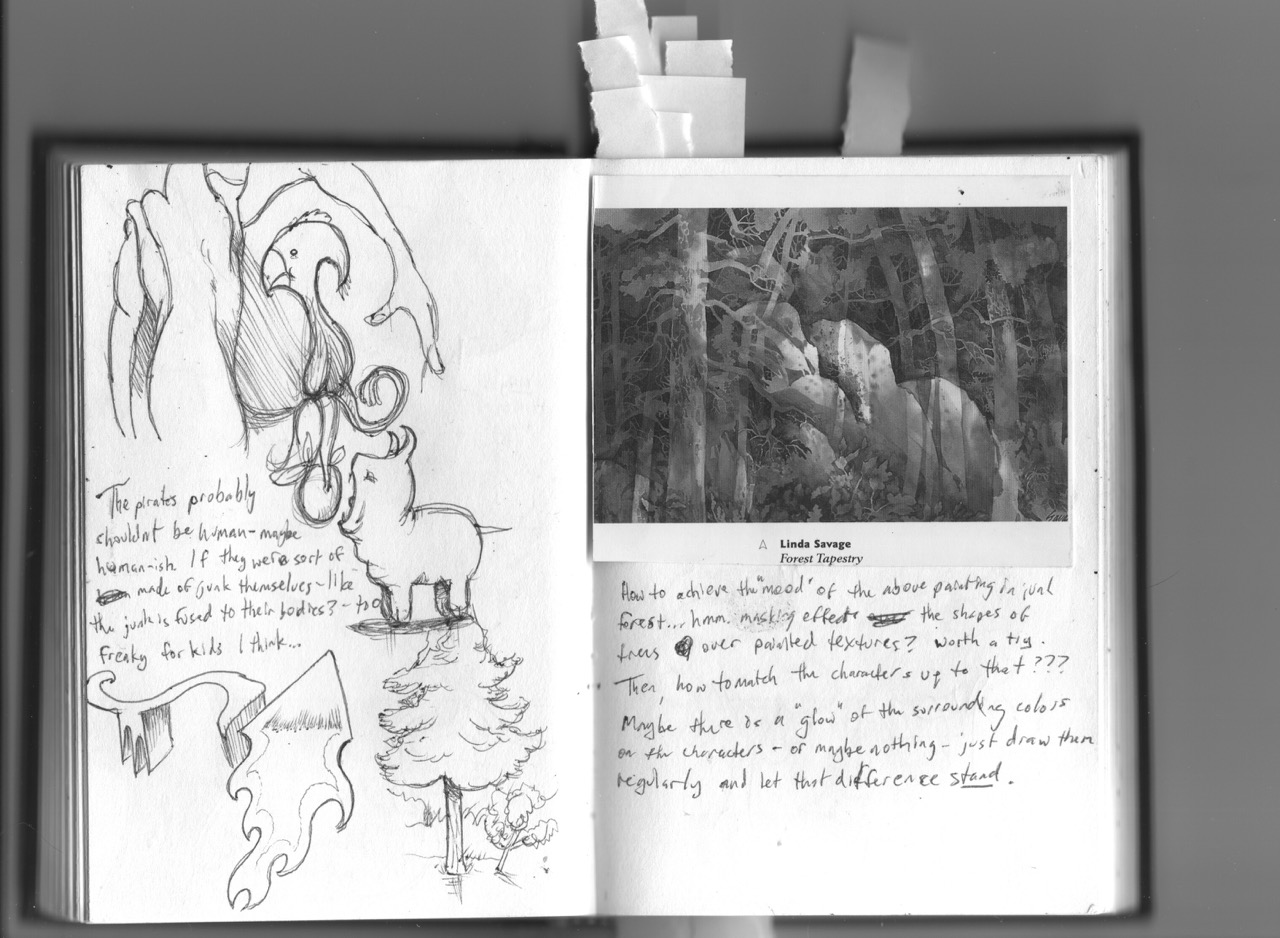 The pirates probably
shouldnt be human-maybe
human-ish. If they were sort of
made of junk themselves - like
the junk is fused to their bodies? - too
freaky for kids I think...
Linda Savage
Forest Tapestry
How to achieve the "mood" of the above painting in junk
forest... hmm. masking effects the shapes of
trees over painted textures? worth a try.
Then, how to match the characters up to that???
Maybe there is a "glow" of the surrounding colors
on the characters - or maybe nothing - just draw them
regularly and let that difference stand.